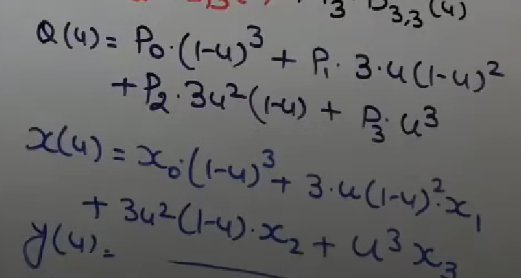 P3 · B3,3(u)
Q(u) = P0·(1-u)³ + P1· 3·u(1-u)²
+ P2·3u²(1-u) + P3·u³
x(u) = x0·(1-u)³ + 3·u(1-u)²·x1
+ 3u²(1-u)·x2 + u³x3
y(u) =